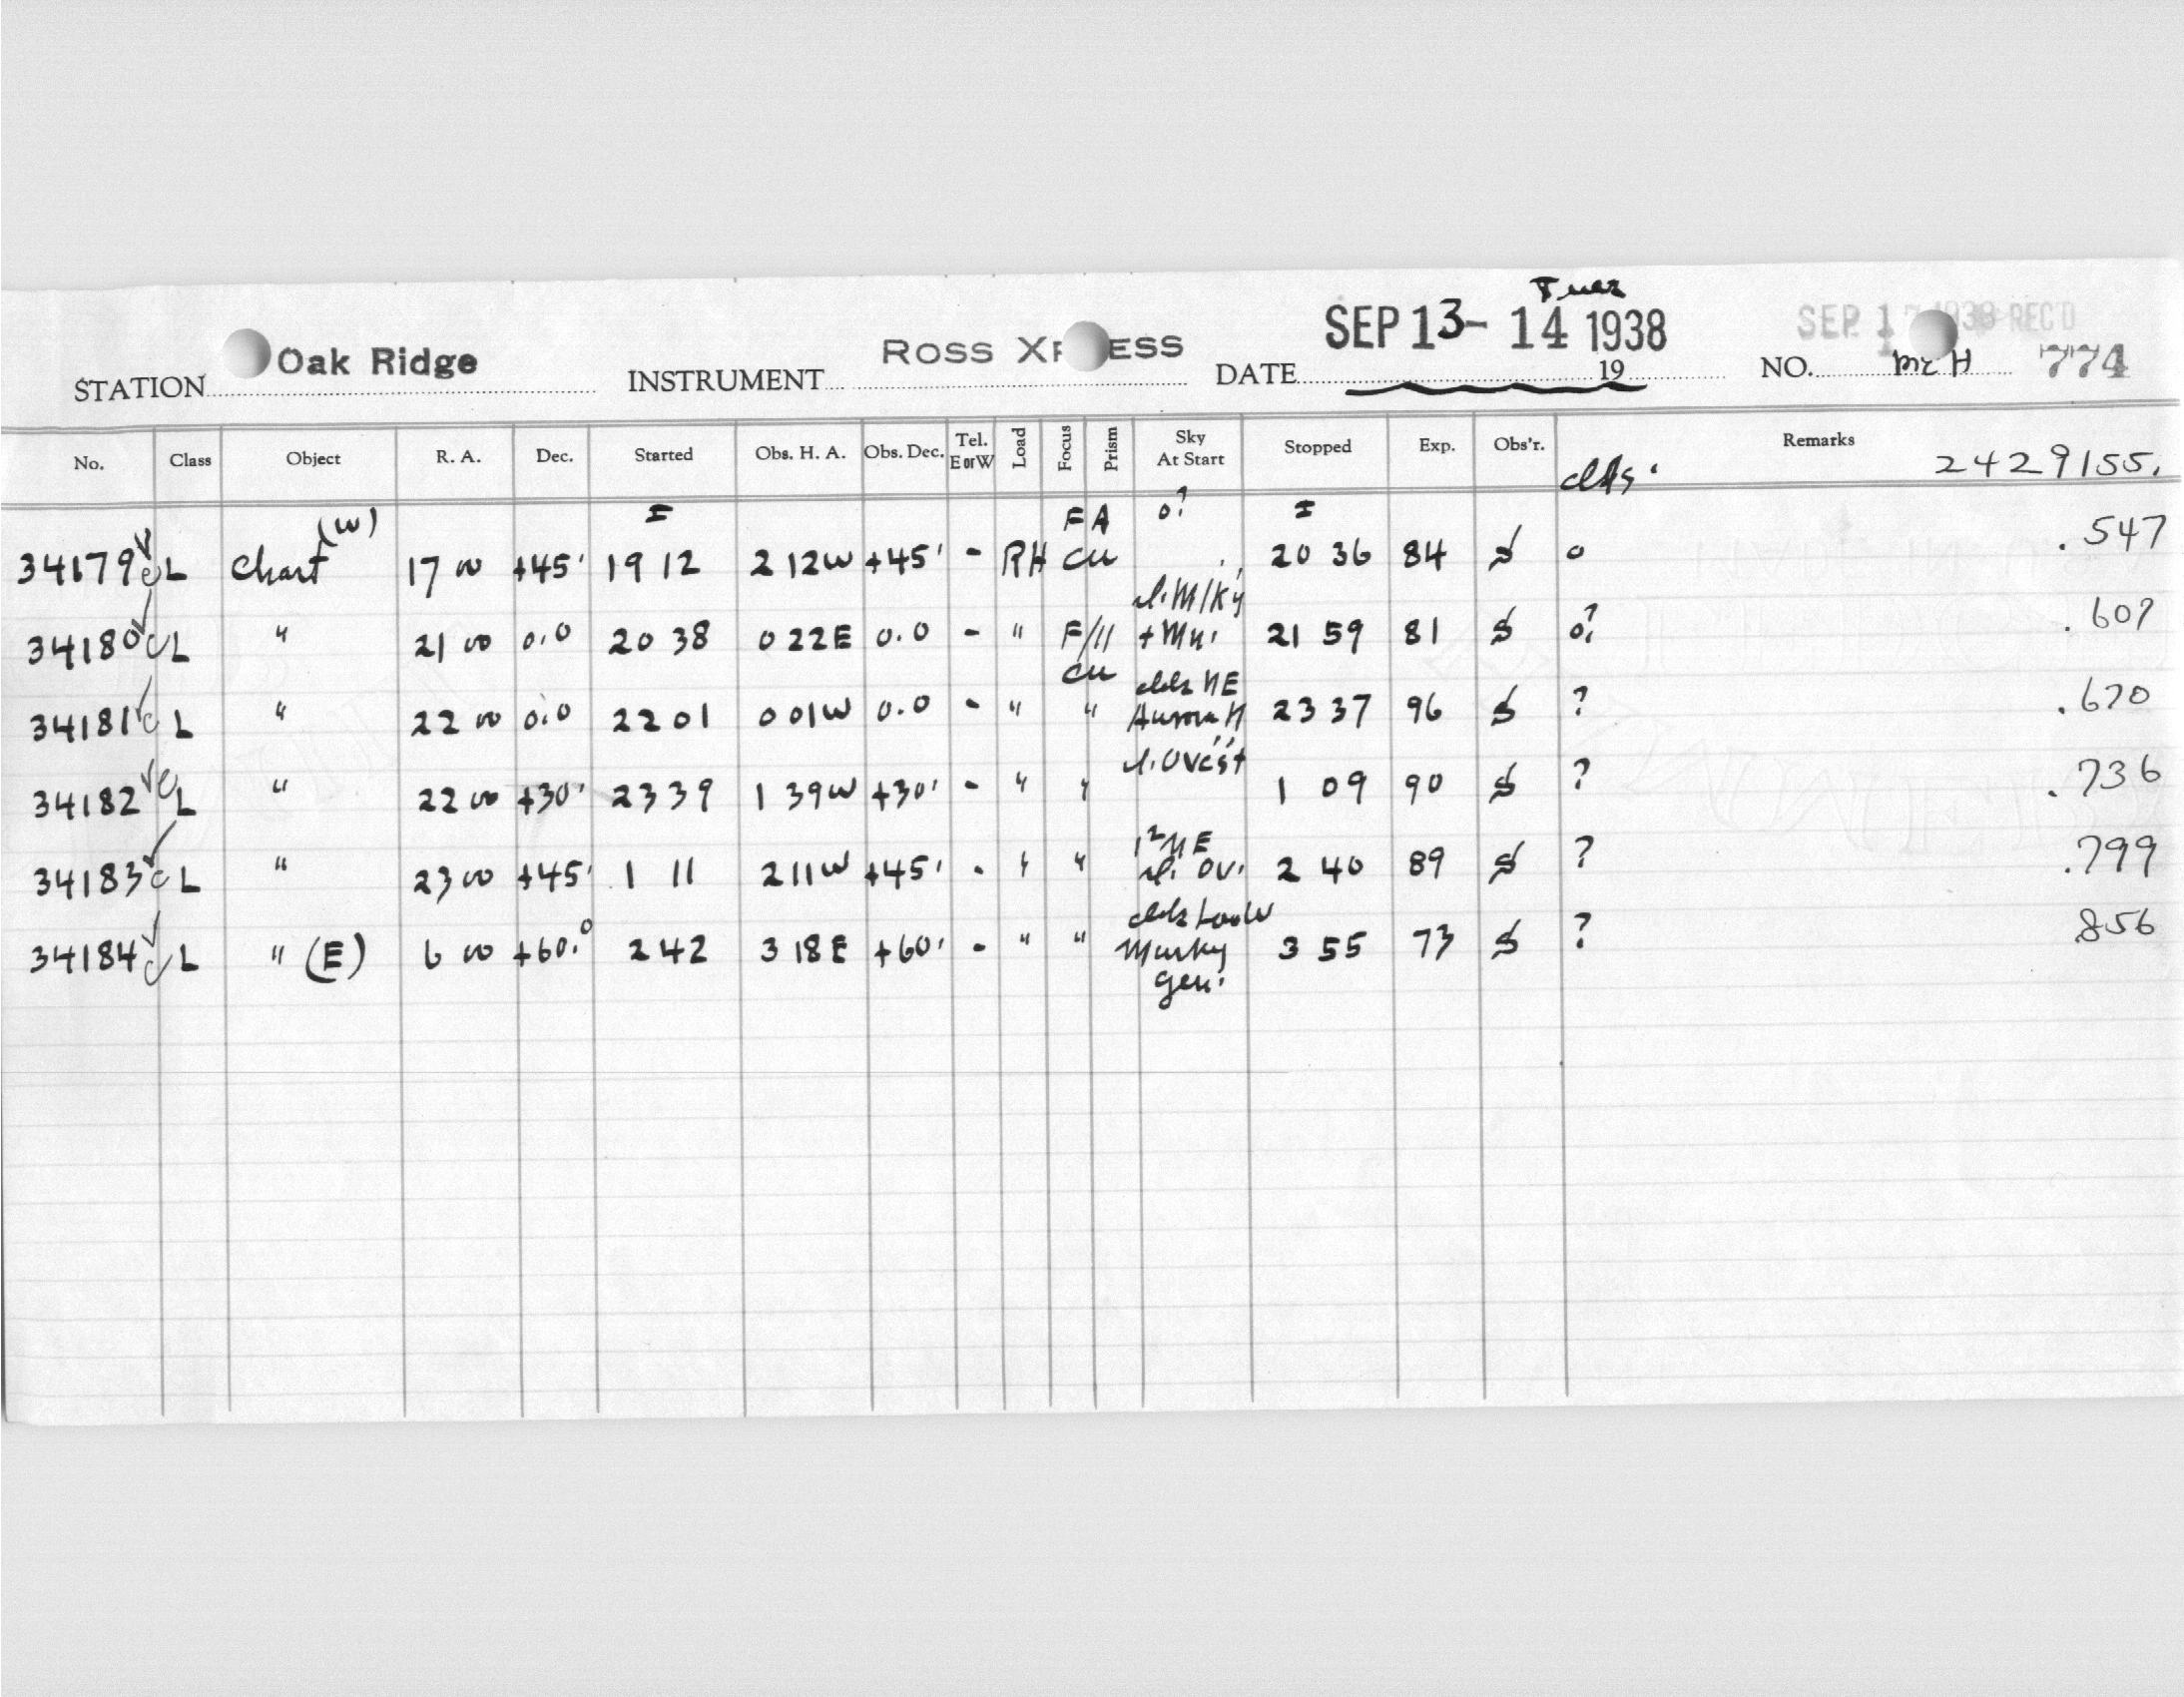 Tues
SEP 13- 14 1938
SEP 1 1938 REC'D
STATION Oak Ridge INSTRUMENT ROSS XPRESS DATE 19 NO. McH 774
No. Class Object R. A. Dec. Started Obs. H. A. Obs. Dec. Tel. E or W Load Focus Prism Sky At Start Stopped Exp. Obs'r. Remarks
clds. 2429155.
34179 L Chart (W) 17 00 +45° 19 12 2 12W +45° - RH FA Cu o? 20 36 84 o .547
34180 L " 21 00 0.0 20 38 0 22E 0.0 - " F/11 Cu sl. Milky + Mu. 21 59 81 o? .607
34181 L " 22 00 0.0 22 01 0 01W 0.0 - " " clds NE Aurora N 23 37 96 ? .670
34182 L " 22 00 +30° 23 39 1 39W +30° - " " sl. Ovc'st 1 09 90 ? .736
34183 L " 23 00 +45° 1 11 2 11W +45° - " " NE sl. Ov. 2 40 89 ? .799
34184 L " (E) 6 00 +60.° 2 42 3 18E +60° - " " clds Low W Murky gen. 3 55 73 ? .856